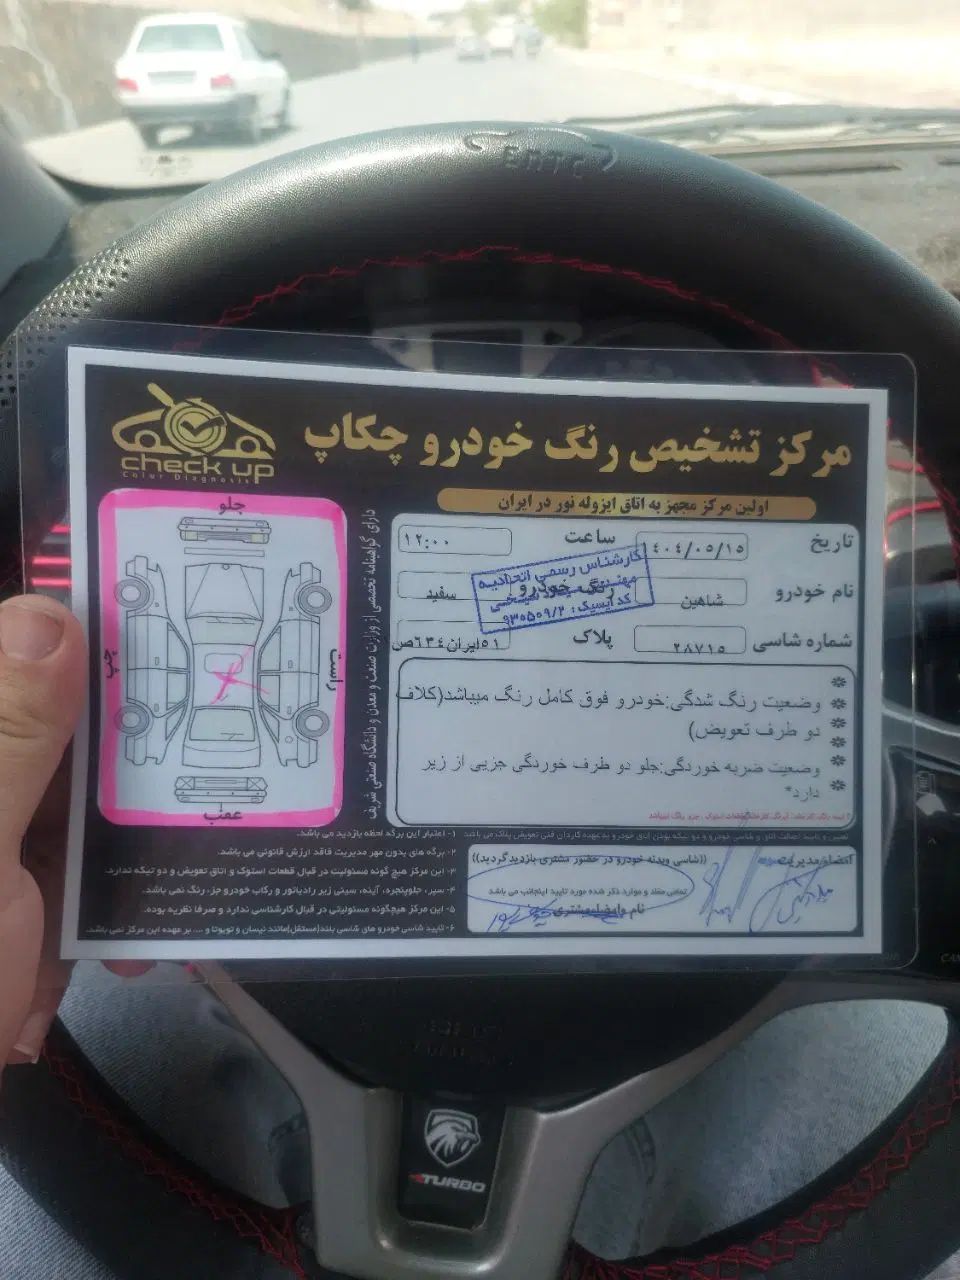 ENTC
check up
Color Diagnosis
مرکز تشخیص رنگ خودرو چکاپ
اولین مرکز مجهز به اتاق ایزوله نور در ایران
تاریخ ۱۴۰۴/۰۵/۱۵ ساعت ۱۲:۰۰
نام خودرو شاهین رنگ خودرو سفید
شماره شاسی ۲۸۷۱۵ پلاک ۵۱ایران۶۳۴ص
کارشناس رسمی اتحادیه
کد ایسیک: ۹۳۰۵۰۹/۲
وضعیت رنگ شدگی:خودرو فوق کامل رنگ میباشد(کلاف
دو طرف تعویض)
وضعیت ضربه خوردگی:جلو دو طرف خوردگی جزیی از زیر
دارد*
جلو
راست
چپ
عقب
دارای گواهینامه تخصصی از وزارت صنعت و معدن و دانشگاه صنعتی شریف
۱- اعتبار این برگه لحظه بازدید می باشد.
۲- برگه های بدون مهر مدیریت فاقد ارزش قانونی می باشد.
۳- این مرکز هیچ گونه مسئولیت در قبال قطعات استوک و اتاق تعویض و دو تیکه ندارد.
۴- سپر، جلوپنجره، آینه، سینی زیر رادیاتور و رکاب خودرو جزء رنگ نمی باشد.
۵- این مرکز هیچگونه مسئولیتی در قبال کارشناسی ندارد و صرفا نظریه بوده.
۶- تایید شاسی خودرو های شاسی بلند(مستقل)مانند نیسان و تویوتا و .... بر عهده این مرکز نمی باشد.
امضاء مدیریت
((شاسی وبدنه خودرو در حضور مشتری بازدید گردید))
تمامی مفاد و موارد ذکر شده مورد تایید اینجانب می باشد
نام وامضاء مشتری
TURBO